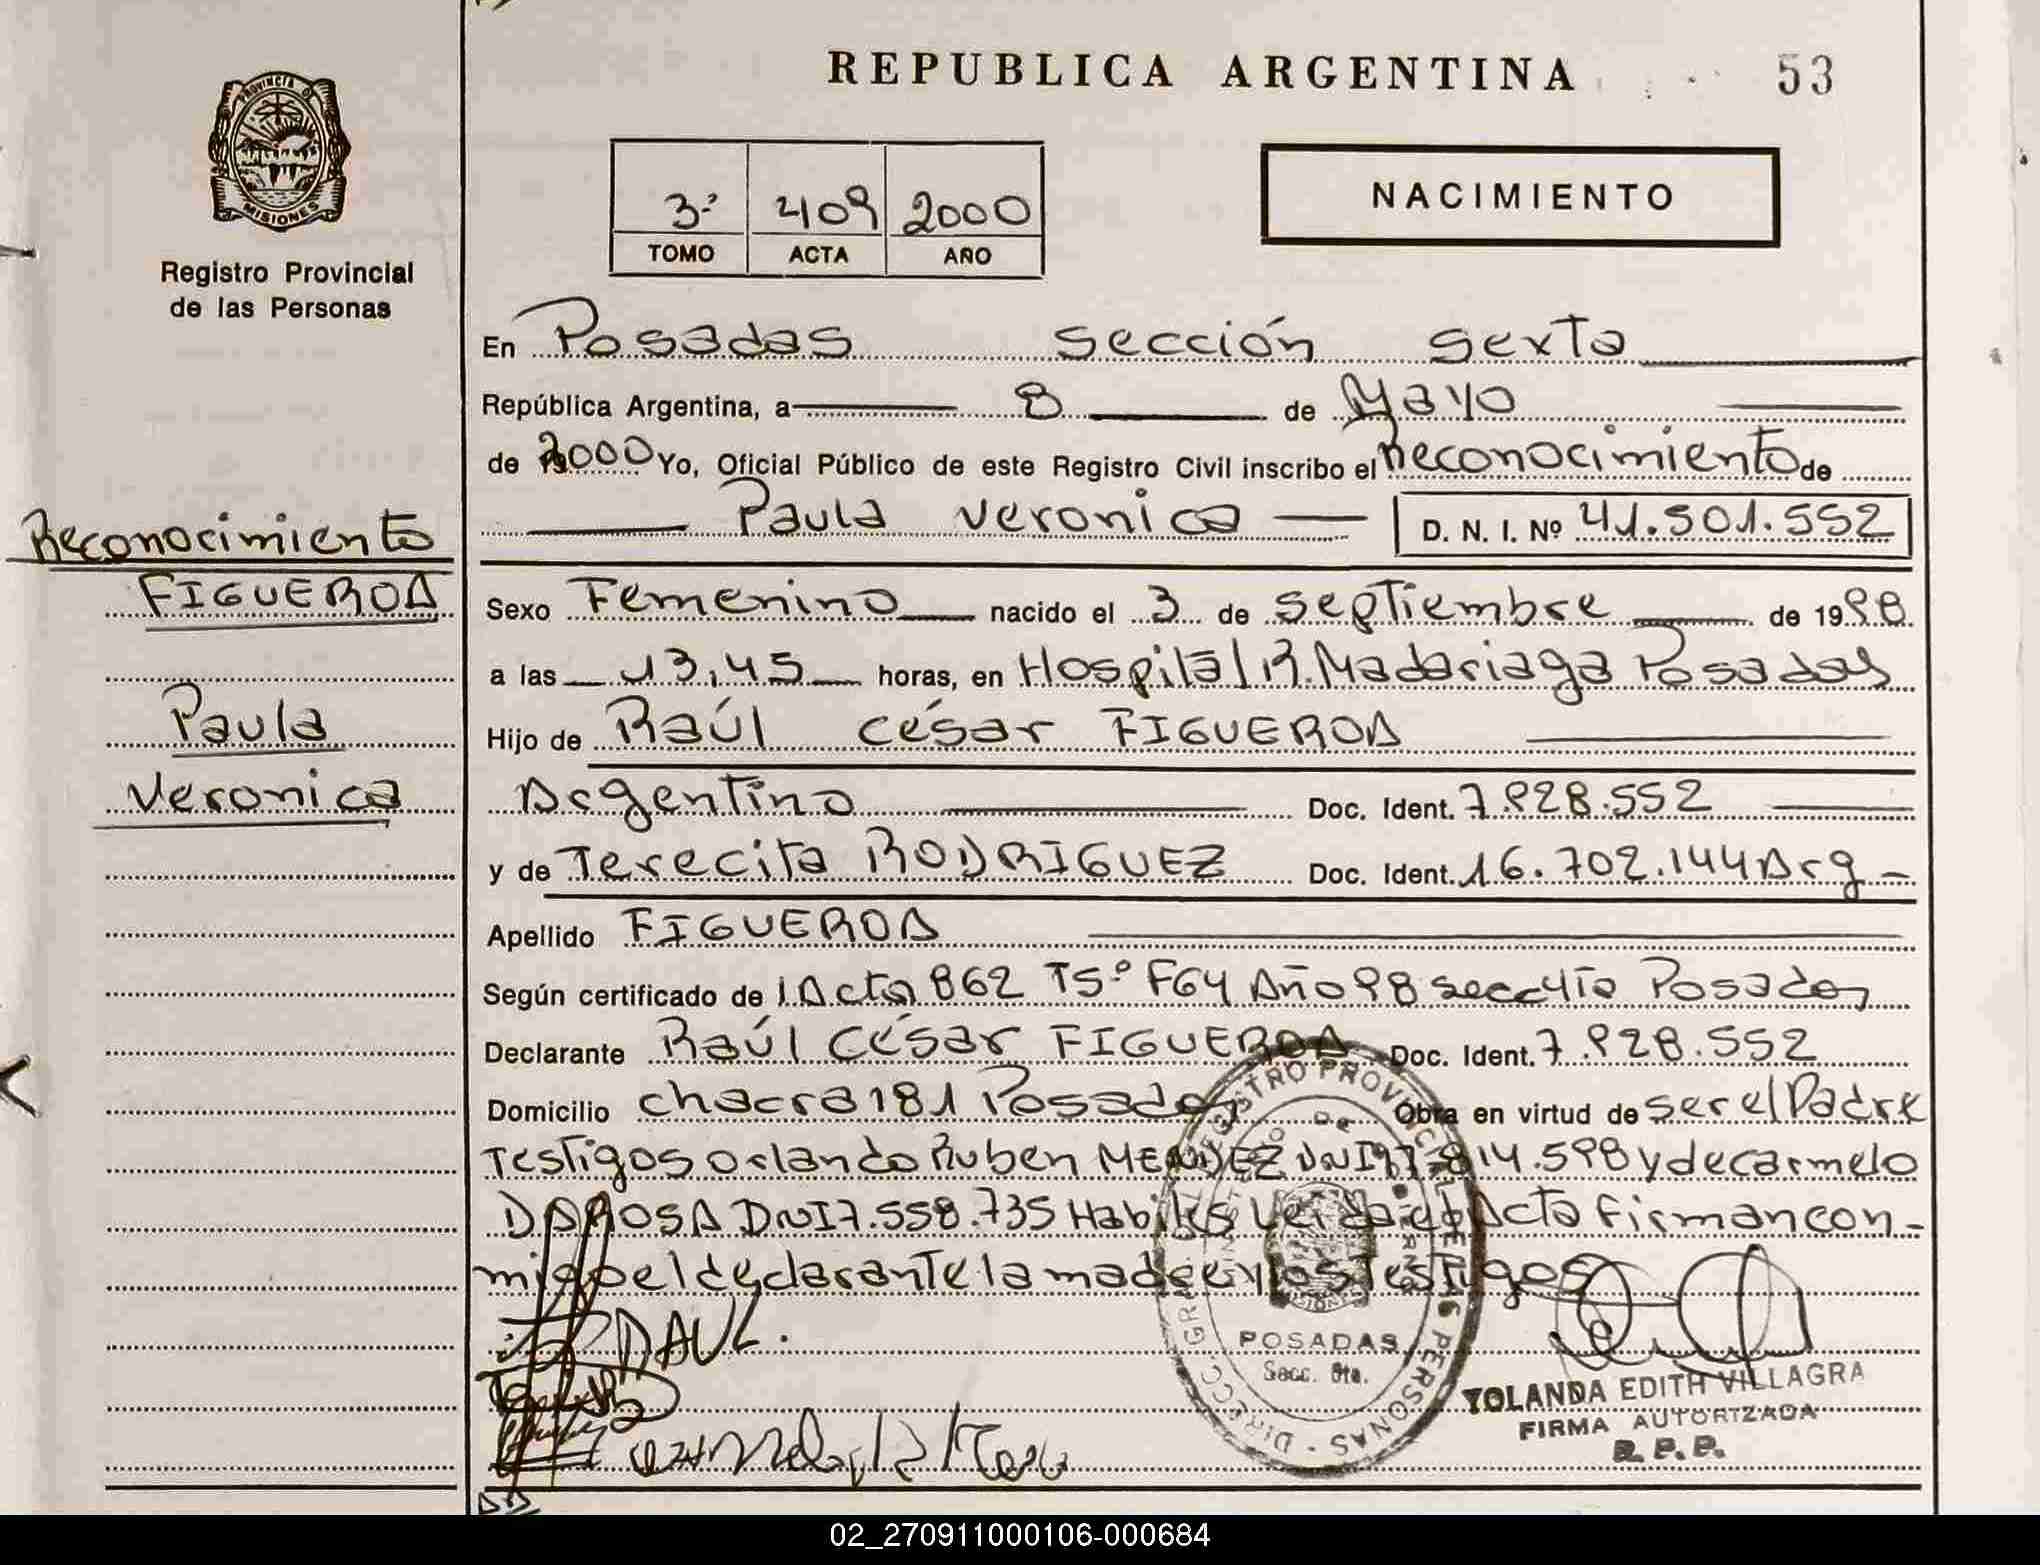 REPUBLICA ARGENTINA 53
PROVINCIA DE
MISIONES
Registro Provincial
de las Personas
3º 409 2000
TOMO ACTA AÑO
NACIMIENTO
En Posadas sección sexta
República Argentina, a 8 de Mayo
de 2000 Yo, Oficial Público de este Registro Civil inscribo el Reconocimiento de
Paula Veronica D. N. I. Nº 41.501.552
Reconocimiento
FIGUEROA
Paula
Veronica
Sexo Femenino nacido el 3 de Septiembre de 1998.
a las 13,45 horas, en Hospital R. Madariaga Posadas
Hijo de Raúl César FIGUEROA
Argentino Doc. Ident. 7.928.552
y de Terecita RODRIGUEZ Doc. Ident. 16.702.144 Arg
Apellido FIGUEROA
Según certificado de 1 Acta 862 T5º F64 Año 98 secc 4ta Posadas
Declarante Raúl César FIGUEROA Doc. Ident. 7.928.552
Domicilio chacra 181 Posadas Obra en virtud de ser el Padre
Testigos Orlando Ruben MENDEZ DNI 814.598 y de carmelo
DAROSA DNI 7.558.735 Habiles Leida el Acta firman con-
migo el declarante la madre y los testigos
RAUL.
DIRECC. GRAL. REGISTRO PROVINCIAL DE LAS PERSONAS
POSADAS
Secc. 6ta.
YOLANDA EDITH VILLAGRA
FIRMA AUTORIZADA
R. P. P.
02_270911000106-000684